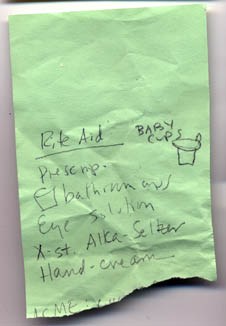 Rite Aid
BABY
CUPS
Prescrip.
bathroom
Eye Solution
X-st. Alka-Seltzer
Hand-cream
ACME